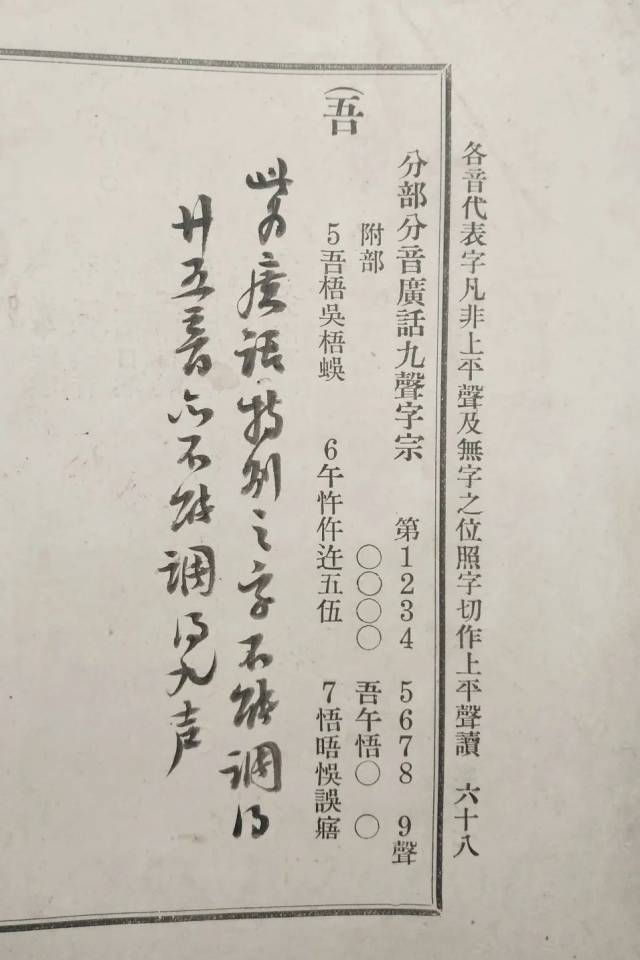 各音代表字凡非上平聲及無字之位照字切作上平聲讀 六十八
分部分音廣話九聲字宗 第1234 5678 9聲
附部 〇〇〇〇 吾午悟〇 〇
(吾 5吾梧吳梧蜈 6午忤仵迕五伍 7悟晤悞誤寤
此为廣話特別之字不能調得
廿五音亦不能調得九声